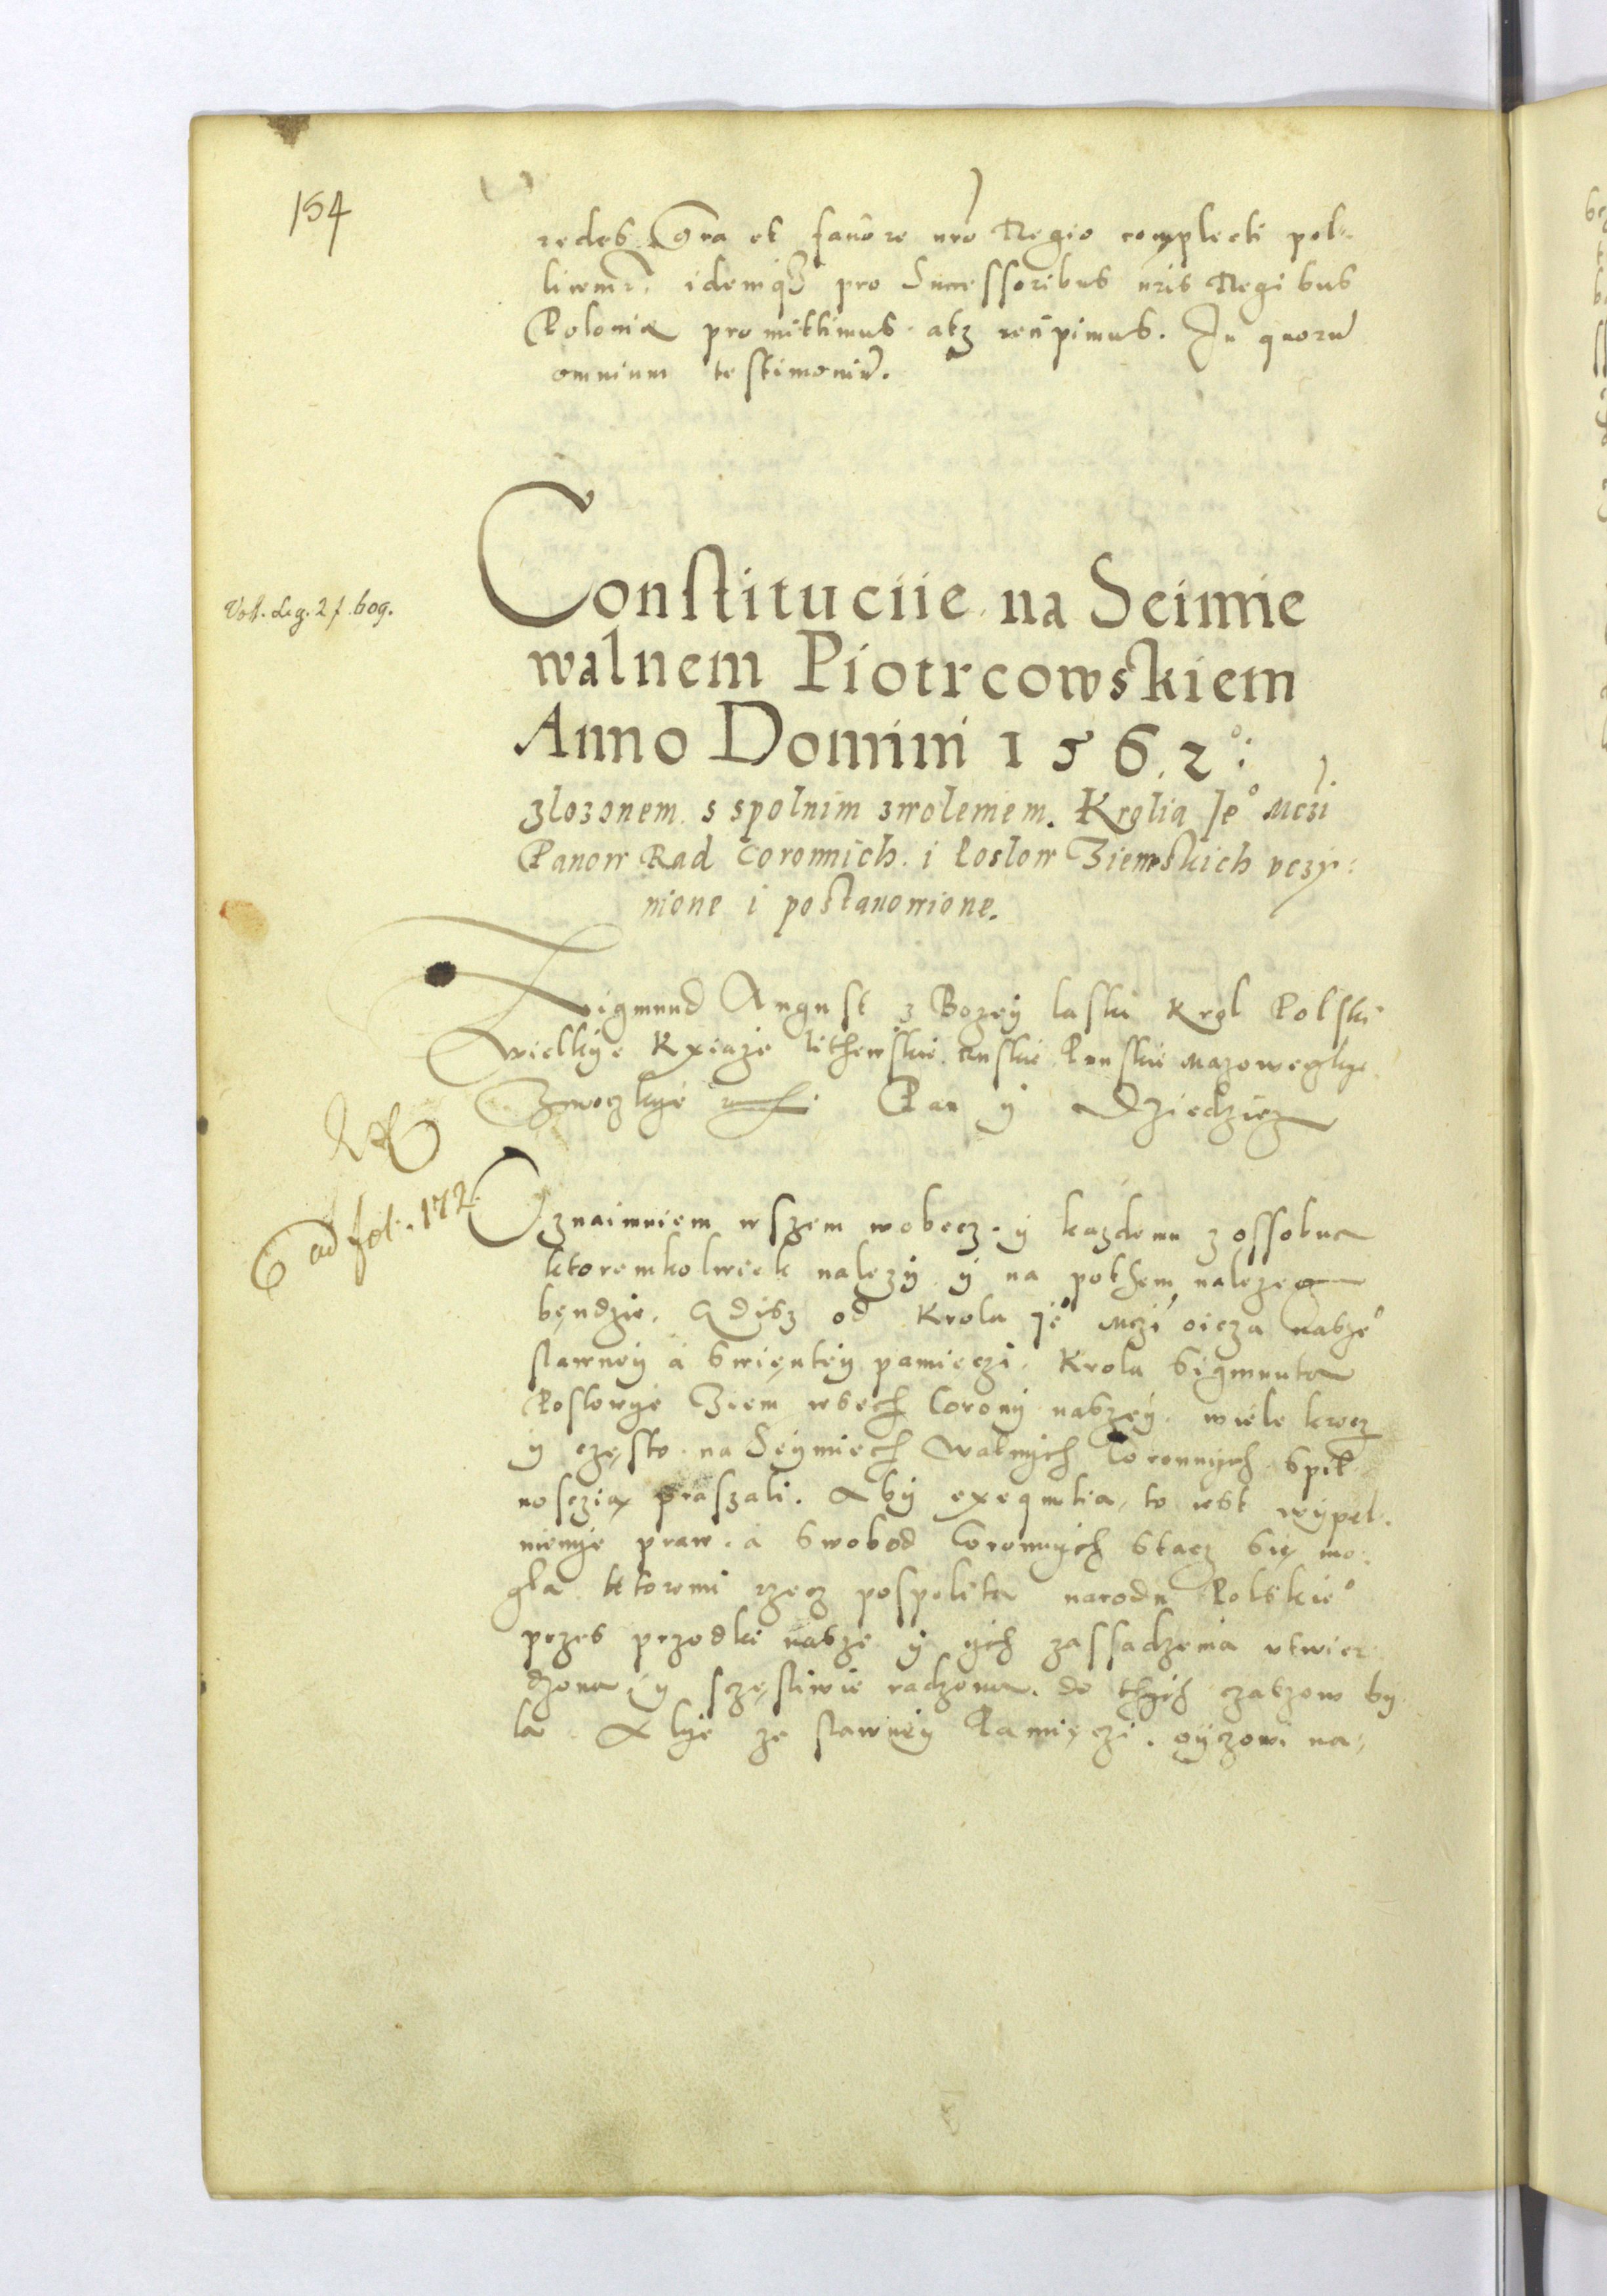 154
redes Gra et fauore nro Regio complecti pol-
licemr. idemq3 pro Successoribus nris Regibus
Poloniæ promittimus atq3 recipimus. In quorũ
omnium testimoniũ.
Vol. Leg. 2 f. 609.
Constituciie na Seimie
walnem Piotrcowskiem
Anno Domini 1562°:
zlozonem s spolnim zwoleniem. Krolia Je° Mczi
Panow Rad Coronnich i Poslow Ziemskich vczy:
nione i postanowione.
Zigmund August z Bozey laski Krol Polski
Wielkye Kxiaze lithewskie Ruskie Pruskie Mazoweczkye
Zmoczkye Pan y Dziedzicz
ad fol. 172.
Oznaimuiem wszem wobecz. y kazdemu z ossobna
ktoremkolwiek nalezy y na pothem nalezec
będzie. Gdisz od Krola Je° Mczi oicza nasze°
slawney a swiętey pamieczi. Krola Sigmunta
Poslowye Ziem wsech Corony naszey. wiele krocz
y często na Seymiech walnych Coronnych s pil
nosczią praszali. Aby exequutia, to iest wypel-
nienye praw. a swobod Coronnych stacz się mo-
gła ktoremi rzecz pospolita narodu Polskie°
przes przodki nasze y ych zassadzenia vtwier
dzona y sczęsliwie radzona. do thych czaszow by
la. Alye ze slawney Pamięczi. oyczowi na-